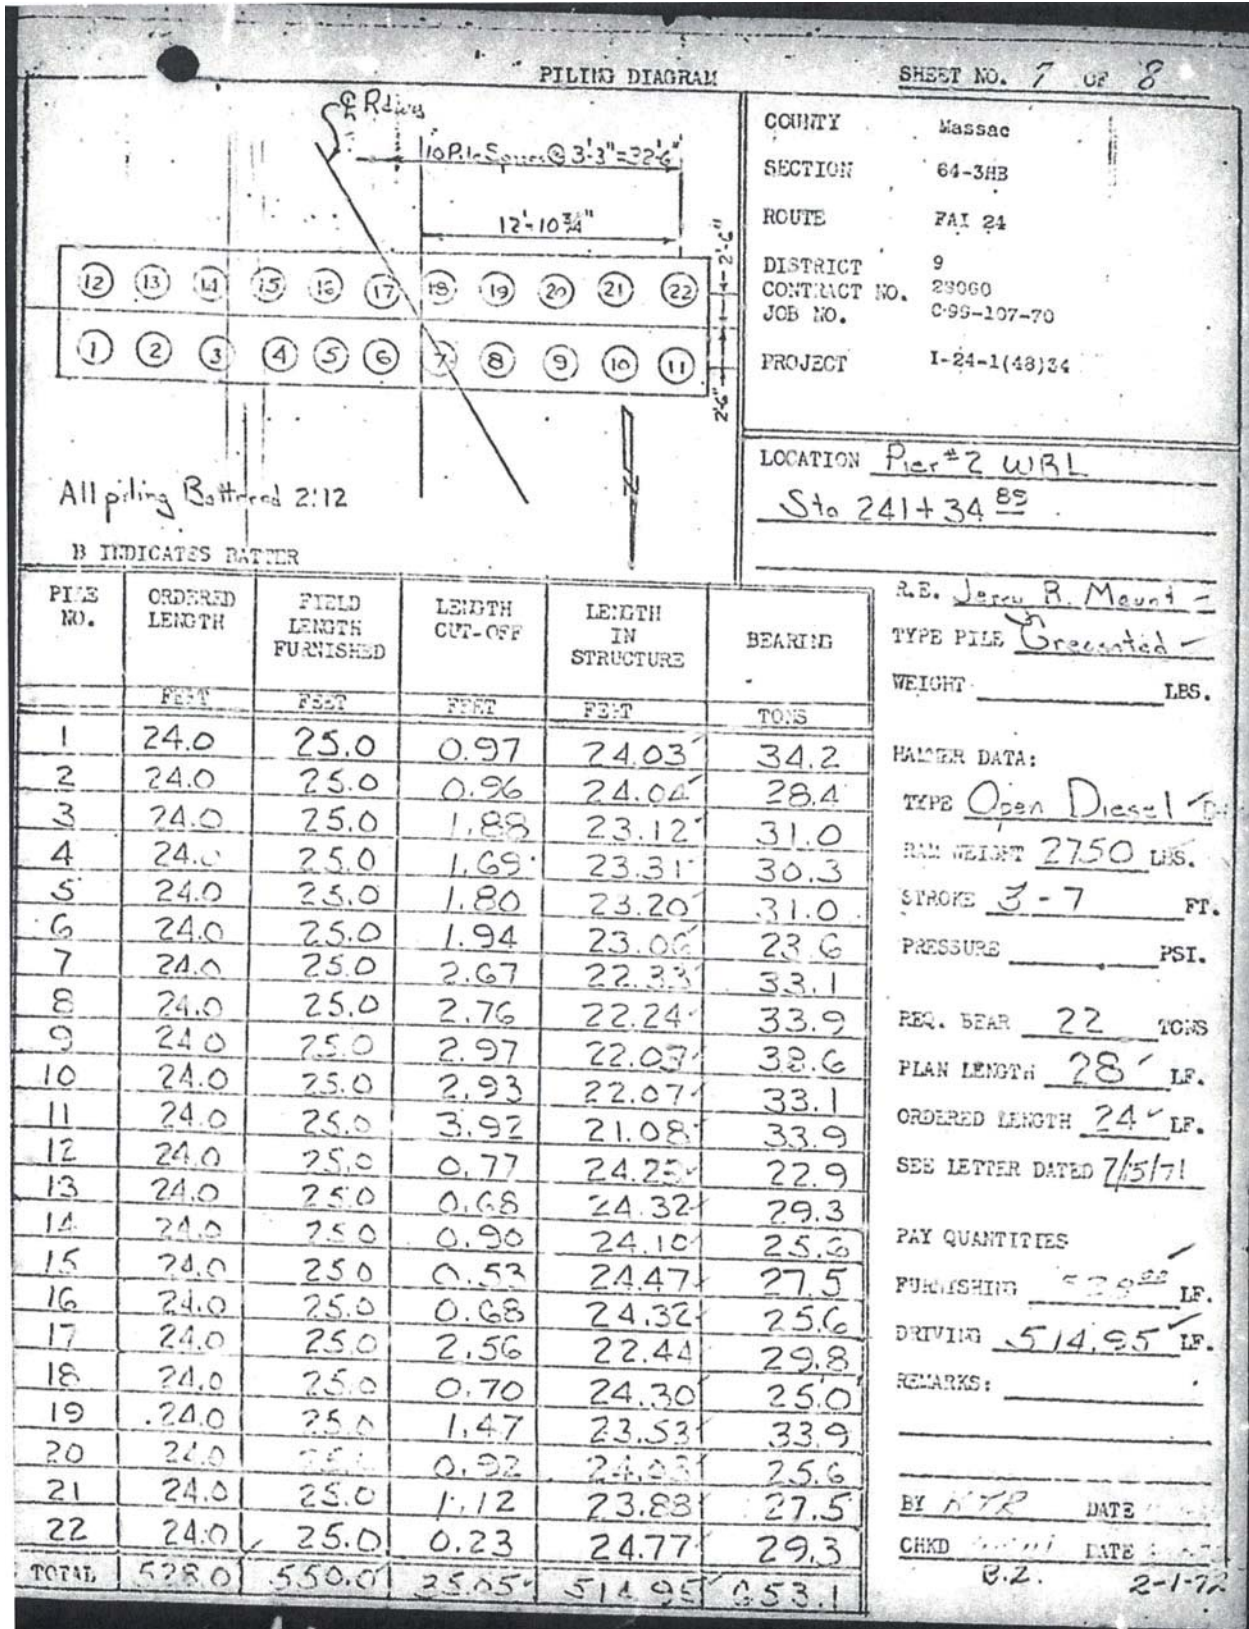 PILING DIAGRAM
SHEET NO. 7 OF 8
℄ Rdwy
10 Pile Spaces @ 3'-3" = 32'-6"
12'-10 3/4"
2'-6"
12 13 14 15 16 17 18 19 20 21 22
1 2 3 4 5 6 7 8 9 10 11
2'6"
N
All piling Battered 2:12
B INDICATES BATTER
COUNTY Massac
SECTION 64-3HB
ROUTE FAI 24
DISTRICT 9
CONTRACT NO. 28060
JOB NO. C-99-107-70
PROJECT I-24-1(48)34
LOCATION Pier #2 WRL
Sta 241+34 85
PILE NO. ORDERED LENGTH FIELD LENGTH FURNISHED LENGTH CUT-OFF LENGTH IN STRUCTURE BEARING
FEET FEET FEET FEET TONS
1 24.0 25.0 0.97 24.03 34.2
2 24.0 25.0 0.96 24.04 28.4
3 24.0 25.0 1.88 23.12 31.0
4 24.0 25.0 1.69 23.31 30.3
5 24.0 25.0 1.80 23.20 31.0
6 24.0 25.0 1.94 23.06 23.6
7 24.0 25.0 2.67 22.33 33.1
8 24.0 25.0 2.76 22.24 33.9
9 24.0 25.0 2.97 22.03 38.6
10 24.0 25.0 2.93 22.07 33.1
11 24.0 25.0 3.92 21.08 33.9
12 24.0 25.0 0.77 24.23 22.9
13 24.0 25.0 0.68 24.32 29.3
14 24.0 25.0 0.90 24.10 25.6
15 24.0 25.0 0.53 24.47 27.5
16 24.0 25.0 0.68 24.32 25.6
17 24.0 25.0 2.56 22.44 29.8
18 24.0 25.0 0.70 24.30 25.0
19 24.0 25.0 1.47 23.53 33.9
20 24.0 0.92 25.6
21 24.0 25.0 1.12 23.88 27.5
22 24.0 25.0 0.23 24.77 29.3
TOTAL 528.0 550.0 35.05 514.95 653.1
R.E. Jerry R. Mount
TYPE PILE Creosoted
WEIGHT LBS.
HAMMER DATA:
TYPE Open Diesel
RAM WEIGHT 2750 LBS.
STROKE 3 - 7 FT.
PRESSURE PSI.
REQ. BEAR 22 TONS
PLAN LENGTH 28 LF.
ORDERED LENGTH 24 LF.
SEE LETTER DATED 7/15/71
PAY QUANTITIES
FURNISHING 528 00 LF.
DRIVING 514.95 LF.
REMARKS:
BY KTR DATE
CHKD DATE
B.Z. 2-1-72